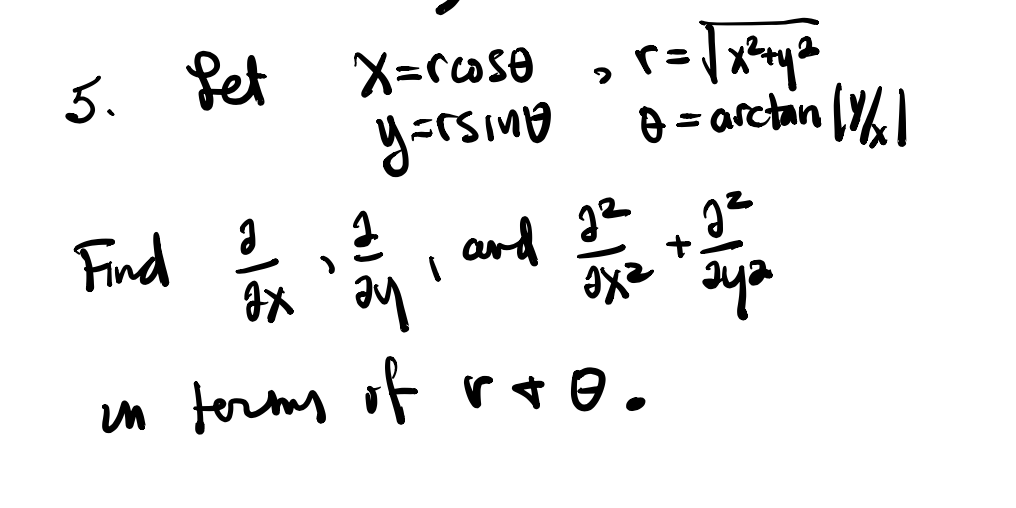 5. Let x=rcosθ , r=√x²+y²
y=rsinθ θ = arctan |y/x|
Find ∂/∂x , ∂/∂y , and ∂²/∂x² + ∂²/∂y²
in terms of r + θ.